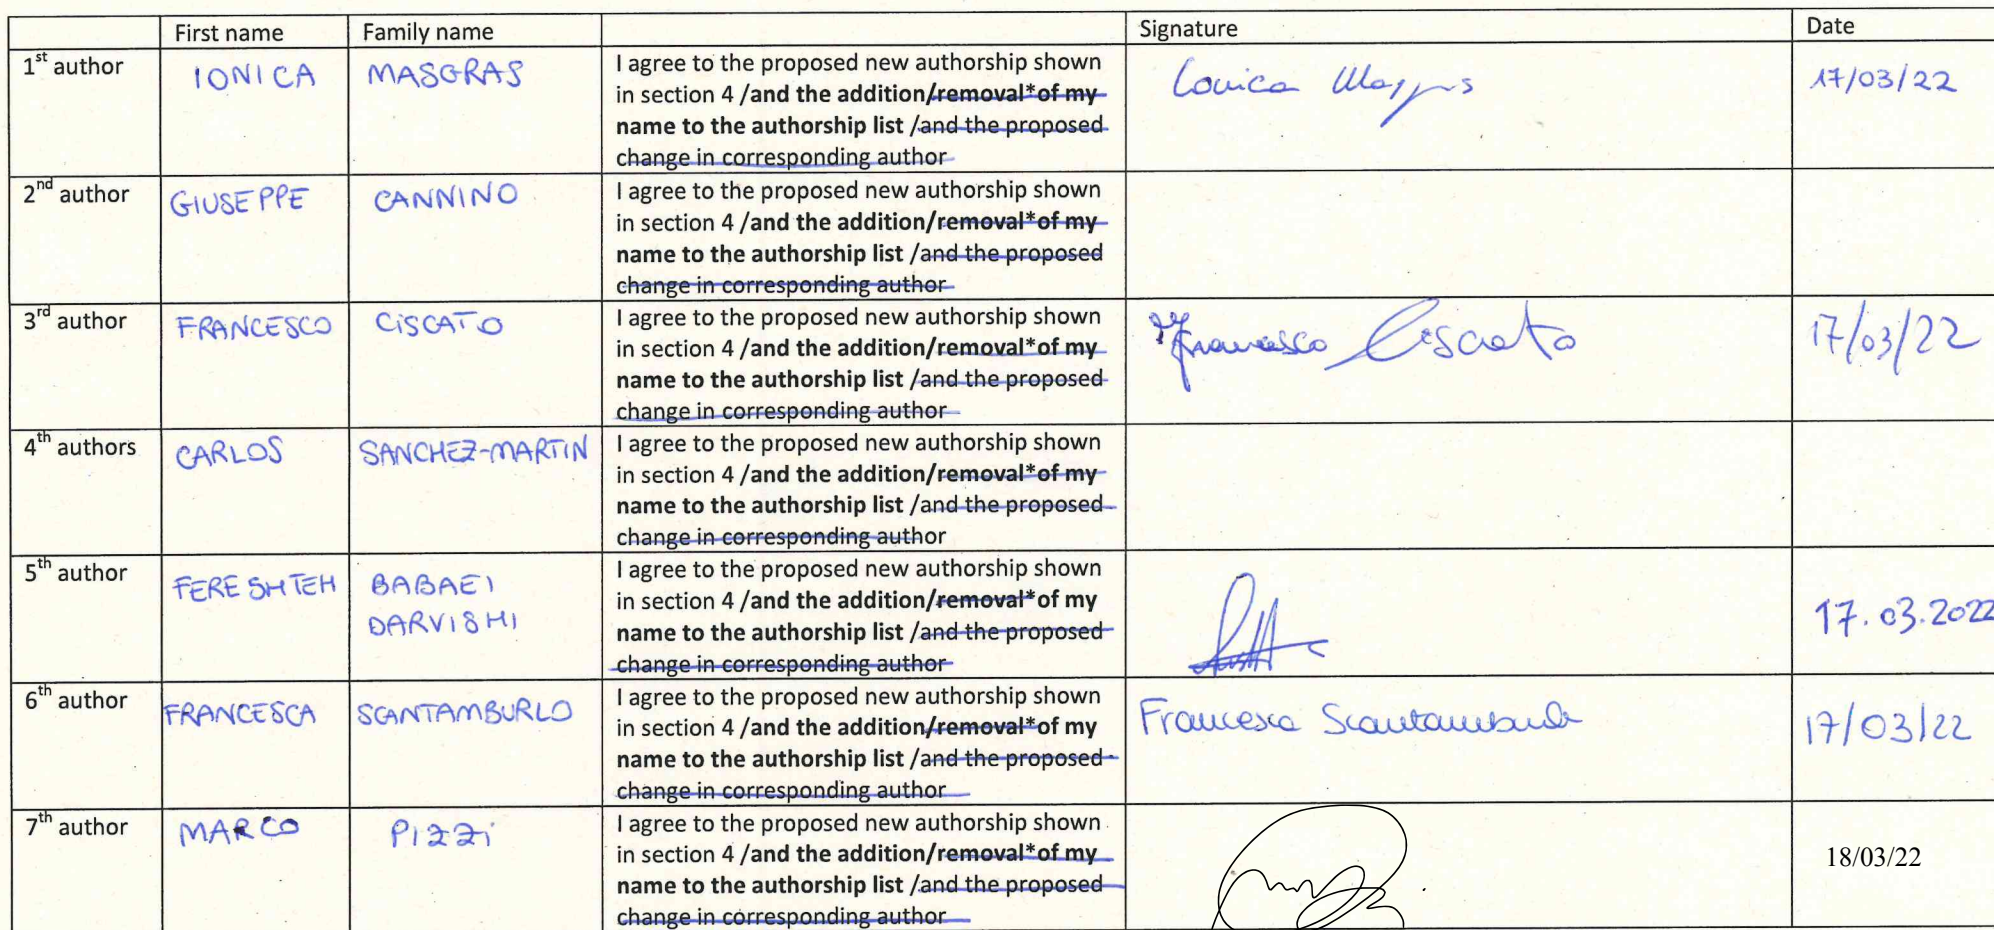 First name Family name Signature Date
1st author IONICA MASGRAS I agree to the proposed new authorship shown Ionica 17/03/22
in section 4 /and the addition/removal*of my
name to the authorship list /and the proposed
change in corresponding author
2nd author GIUSEPPE CANNINO I agree to the proposed new authorship shown
in section 4 /and the addition/removal*of my
name to the authorship list /and the proposed
change in corresponding author
3rd author FRANCESCO CISCATO I agree to the proposed new authorship shown Francesco Ciscato 17/03/22
in section 4 /and the addition/removal*of my
name to the authorship list /and the proposed
change in corresponding author
4th authors CARLOS SANCHEZ-MARTIN I agree to the proposed new authorship shown
in section 4 /and the addition/removal*of my
name to the authorship list /and the proposed
change in corresponding author
5th author FERESHTEH BABAEI I agree to the proposed new authorship shown 17.03.2022
DARVISHI in section 4 /and the addition/removal*of my
name to the authorship list /and the proposed
change in corresponding author
6th author FRANCESCA SCANTAMBURLO I agree to the proposed new authorship shown Francesca Scantamburlo 17/03/22
in section 4 /and the addition/removal*of my
name to the authorship list /and the proposed
change in corresponding author
7th author MARCO PIZZI I agree to the proposed new authorship shown 18/03/22
in section 4 /and the addition/removal*of my
name to the authorship list /and the proposed
change in corresponding author